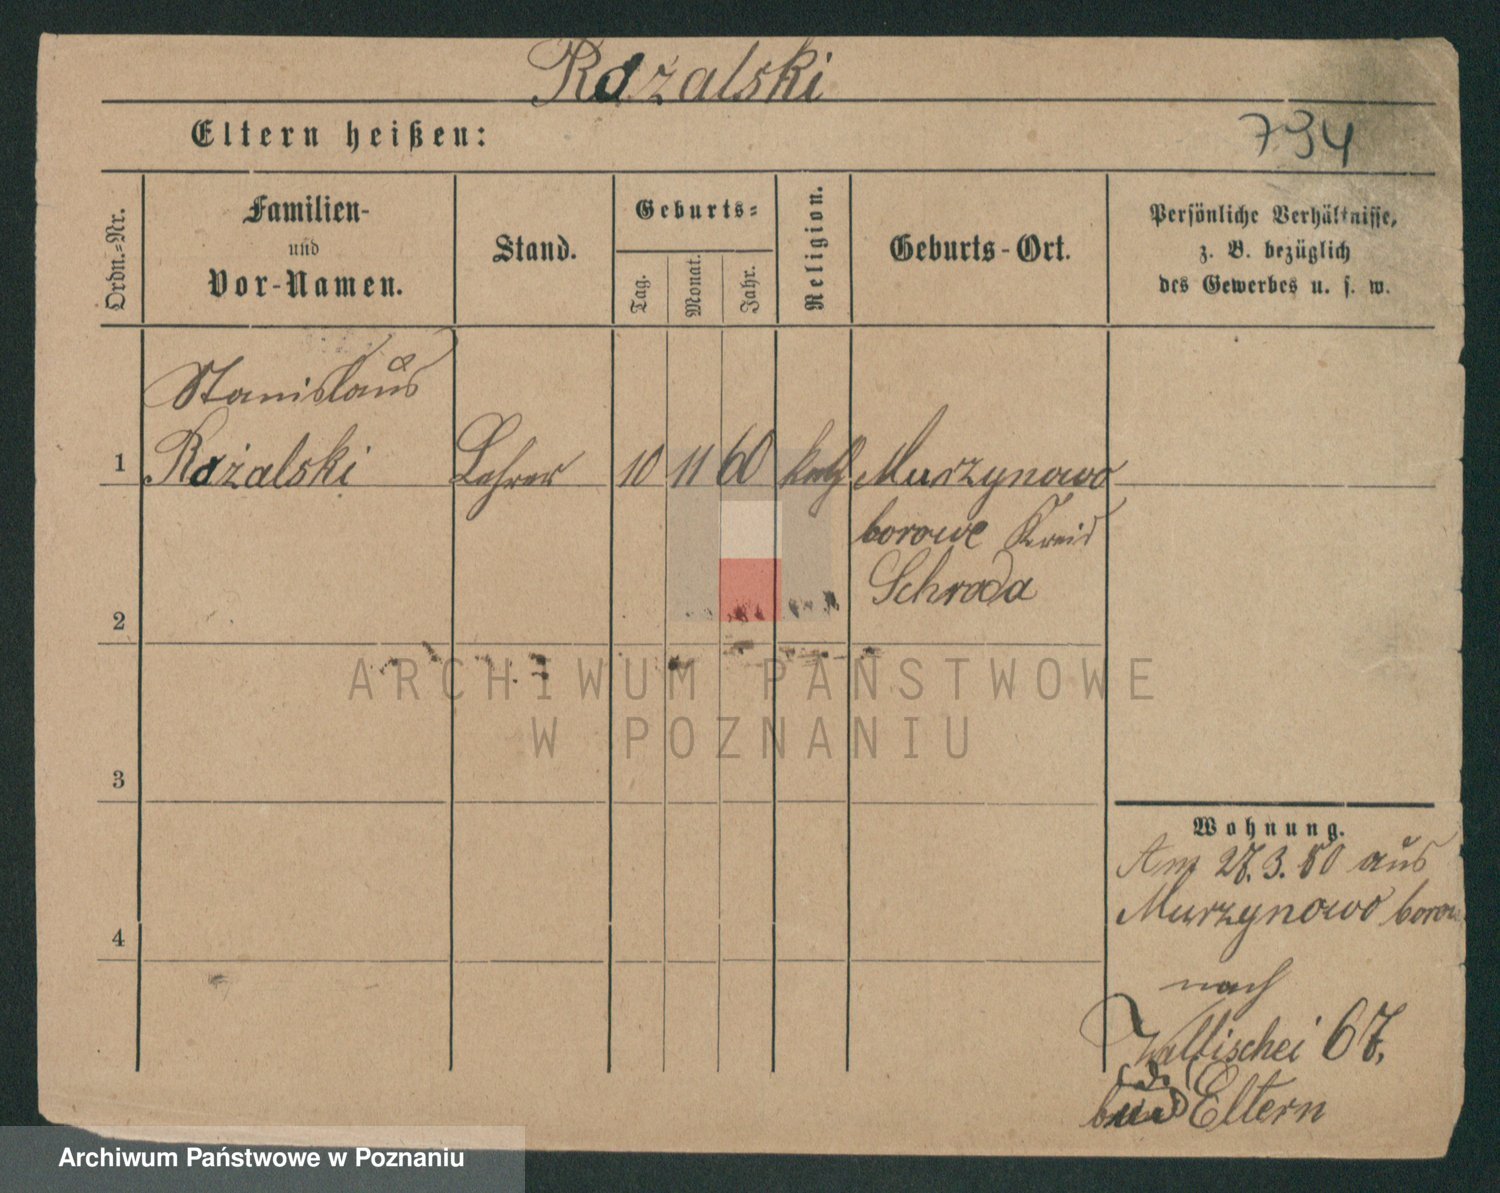 Rożalski
Eltern heißen:
734
Ordn.-Nr.
Familien-
und
Vor-Namen.
Stand.
Geburts-
Tag.
Monat.
Jahr.
Religion.
Geburts-Ort.
Persönliche Verhältnisse,
z. B. bezüglich
des Gewerbes u. s. w.
Stanislaus
1 Rożalski Lehrer 10 11 60 kath Murzynowo
borowe Kreis
Schroda
2
3
4
Wohnung.
Am 27. 3. 80 aus
Murzynowo borow
nach
Wallischei 67,
Eltern
ARCHIWUM PAŃSTWOWE
W POZNANIU
Archiwum Państwowe w Poznaniu